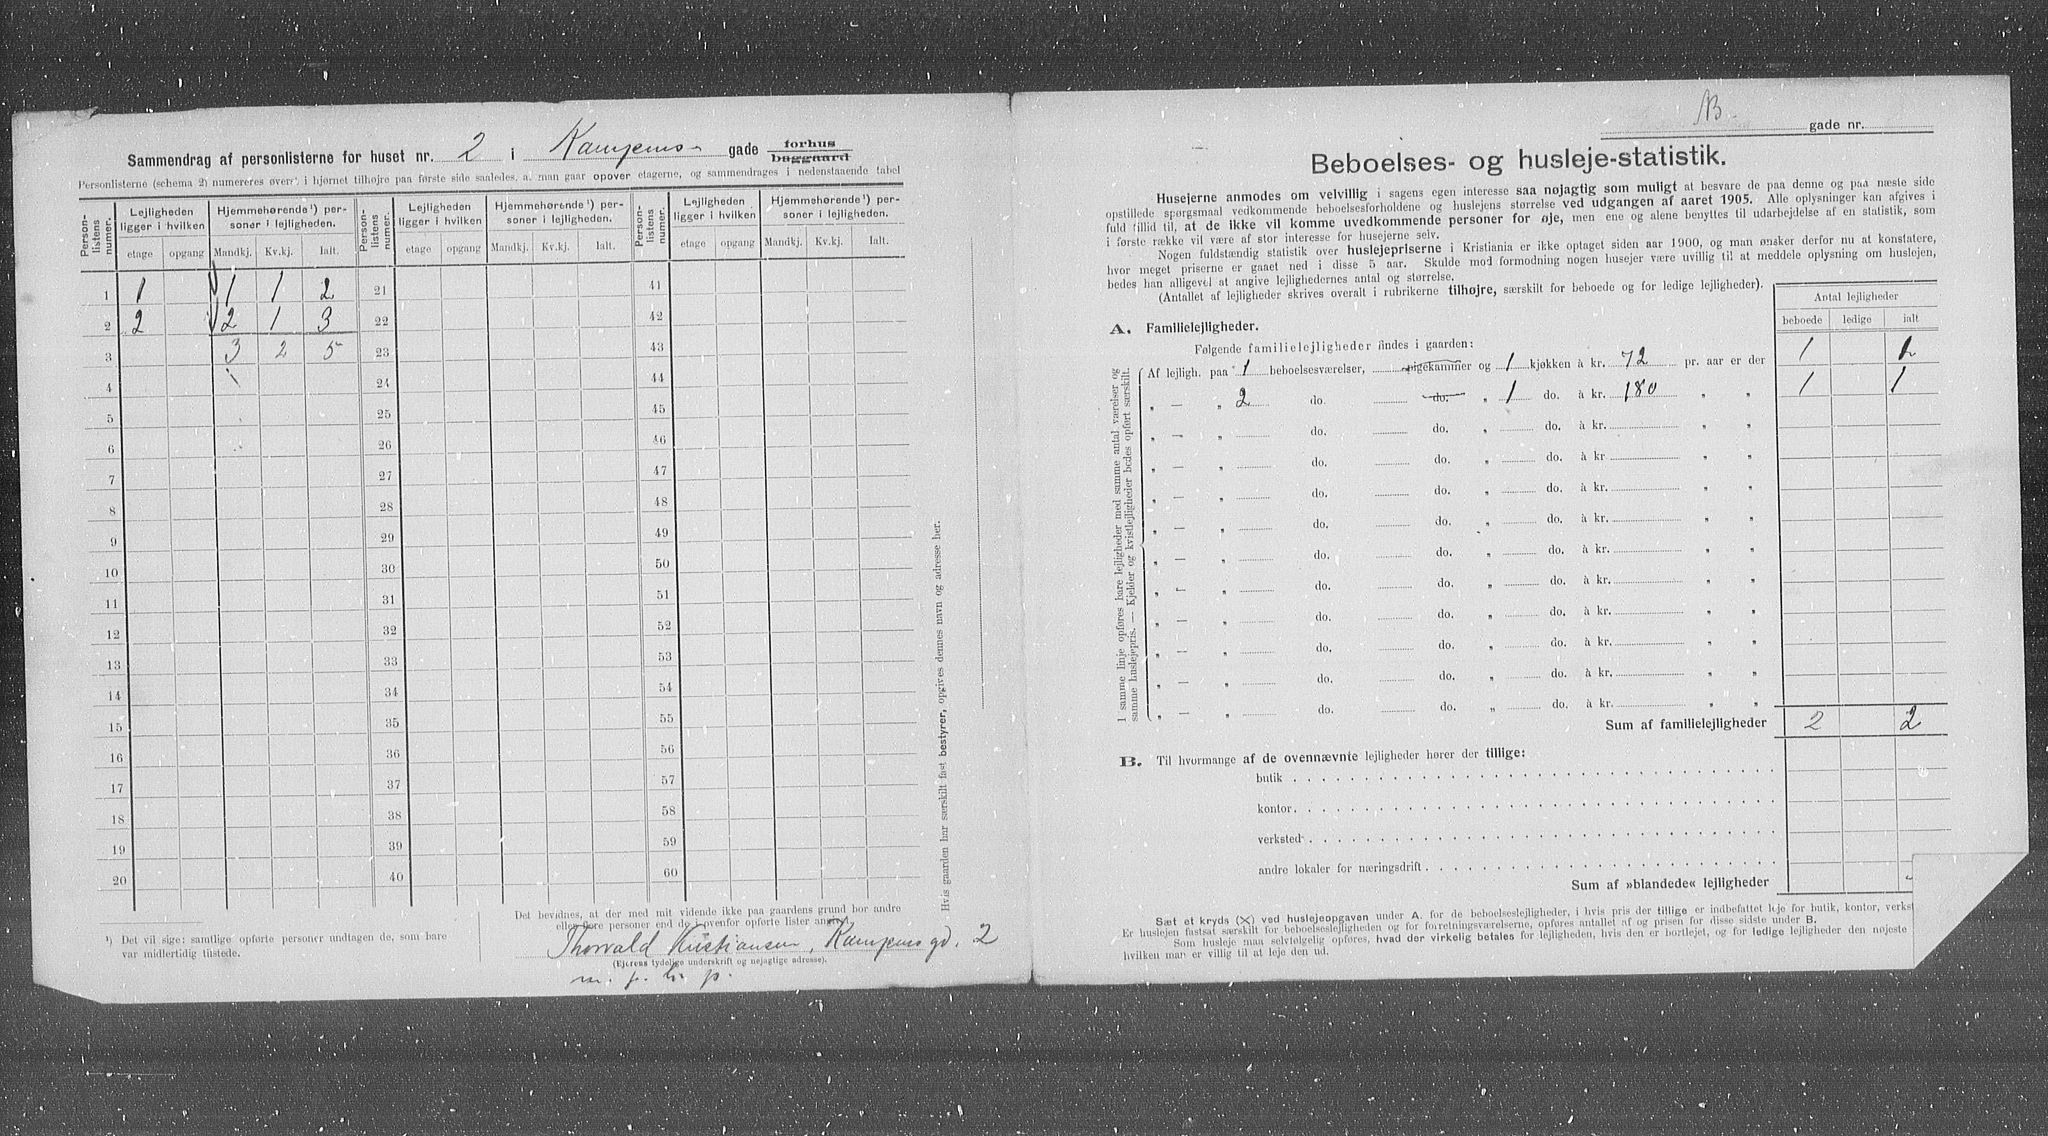 Sammendrag af personlisterne for huset nr. 2 i Kampens gade forhus
baggaard
Personlisterne (schema 2) numereres øverst i hjørnet tilhøjre paa første side saaledes, at man gaar opover etagerne, og sammendrages i nedenstaaende tabel
Person-listens numer. Lejligheden ligger i hvilken Hjemmehørende¹) personer i lejligheden. Person-listens numer. Lejligheden ligger i hvilken Hjemmehørende¹) personer i lejligheden. Person-listens numer. Lejligheden ligger i hvilken Hjemmehørende¹) personer i lejligheden.
etage opgang Mandkj. Kv.kj. Ialt. etage opgang Mandkj. Kv.kj. Ialt. etage opgang Mandkj. Kv.kj. Ialt.
1 1 1 1 2 21 41
2 2 2 1 3 22 42
3 3 2 5 23 43
4 24 44
5 25 45
6 26 46
7 27 47
8 28 48
9 29 49
10 30 50
11 31 51
12 32 52
13 33 53
14 34 54
15 35 55
16 36 56
17 37 57
18 38 58
19 39 59
20 40 60
¹) Det vil sige: samtlige opførte personer undtagen de, som bare
var midlertidig tilstede.
Det bevidnes, at der med mit vidende ikke paa gaardens grund bor andre
eller flere personer end de i ovenfor opførte lister anførte.
Thorvald Kristiansen, Kampens gd. 2
(Ejerens tydelige underskrift og nøjagtige adresse).
Hvis gaarden har særskilt fast bestyrer, opgives dennes navn og adresse her.
AB.
gade nr.
Beboelses- og husleje-statistik.
Husejerne anmodes om velvillig i sagens egen interesse saa nøjagtig som muligt at besvare de paa denne og paa næste side
opstillede spørgsmaal vedkommende beboelsesforholdene og huslejens størrelse ved udgangen af aaret 1905. Alle oplysninger kan afgives i
fuld tillid til, at de ikke vil komme uvedkommende personer for øje, men ene og alene benyttes til udarbejdelse af en statistik, som
i første række vil være af stor interesse for husejerne selv.
Nogen fuldstændig statistik over huslejepriserne i Kristiania er ikke optaget siden aar 1900, og man ønsker derfor nu at konstatere,
hvor meget priserne er gaaet ned i disse 5 aar. Skulde mod formodning nogen husejer være uvillig til at meddele oplysning om huslejen,
bedes han alligevel at angive lejlighedernes antal og størrelse.
(Antallet af lejligheder skrives overalt i rubrikerne tilhøjre, særskilt for beboede og for ledige lejligheder).
Antal lejligheder
beboede ledige ialt
A. Familielejligheder.
Følgende familielejligheder findes i gaarden:
Af lejligh. paa 1 beboelsesværelser, pigekammer og 1 kjøkken à kr. 72 pr. aar er der 1 1
„ — „ 2 do. do. „ 1 do. à kr. 180 „ „ 1 1
„ — „ do. do. „ do. à kr. „ „
„ — „ do. do. „ do. à kr. „ „
„ — „ do. do. „ do. à kr. „ „
„ — „ do. do. „ do. à kr. „ „
„ — „ do. do. „ do. à kr. „ „
„ — „ do. do. „ do. à kr. „ „
„ — „ do. do. „ do. à kr. „ „
„ — „ do. do. „ do. à kr. „ „
„ — „ do. do. „ do. à kr. „ „
„ — „ do. do. „ do. à kr. „ „
I samme linje opføres bare lejligheder med samme antal værelser og
samme huslejepris. — Kjelder og kvistlejligheder bedes opført særskilt.
Sum af familielejligheder 2 2
B. Til hvormange af de ovennævnte lejligheder hører der tillige:
butik
kontor
verksted
andre lokaler for næringsdrift
Sum af »blandede« lejligheder
Sæt et kryds (X) ved huslejeopgaven under A. for de beboelseslejligheder, i hvis pris der tillige er indbefattet leje for butik, kontor, verkst
Er huslejen fastsat særskilt for beboelseslejligheden og for forretningsværelserne, opføres antallet af og prisen for disse sidste under B.
Som husleje maa selvfølgelig opføres, hvad der virkelig betales for lejligheden, hvis den er bortlejet, og for ledige lejligheder den nøjeste
hvilken man er villig til at leje den ud.